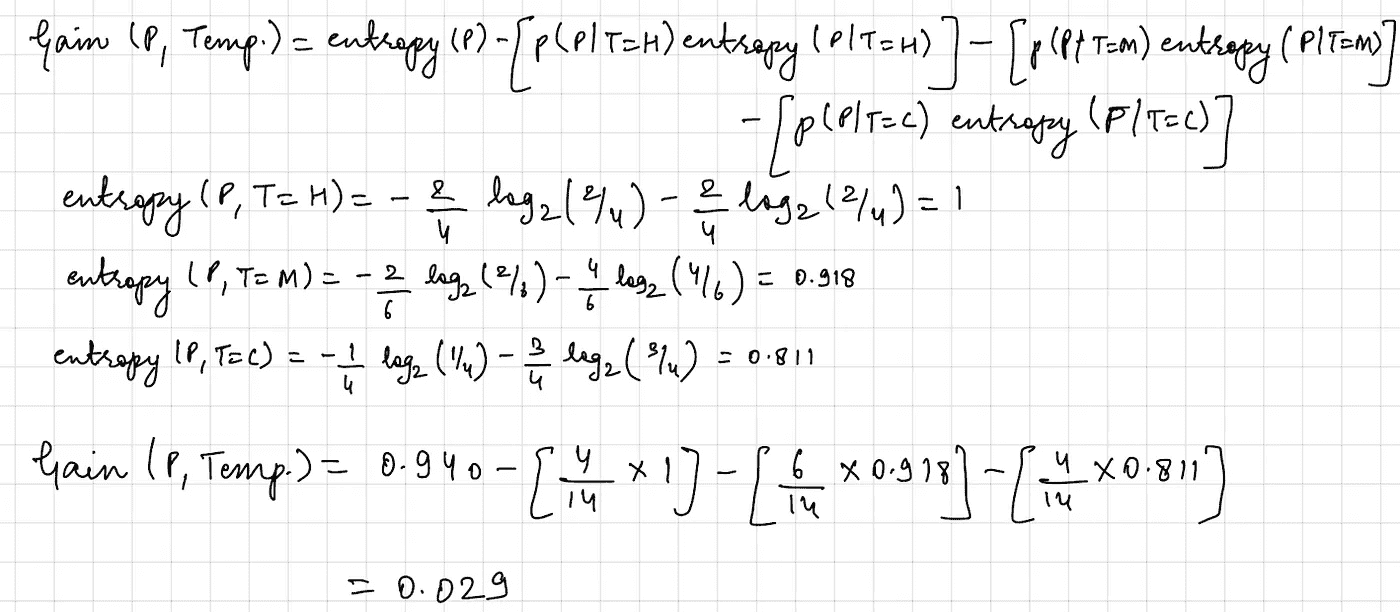 Gain (P, Temp.) = entropy (P) - [p(P|T=H) entropy (P|T=H)] - [p(P|T=M) entropy (P|T=M)]
- [p(P|T=C) entropy (P|T=C)]
entropy (P, T=H) = - 2/4 log₂(2/4) - 2/4 log₂(2/4) = 1
entropy (P, T=M) = - 2/6 log₂(2/6) - 4/6 log₂(4/6) = 0.918
entropy (P, T=C) = - 1/4 log₂(1/4) - 3/4 log₂(3/4) = 0.811
Gain (P, Temp.) = 0.940 - [4/14 × 1] - [6/14 × 0.918] - [4/14 × 0.811]
= 0.029